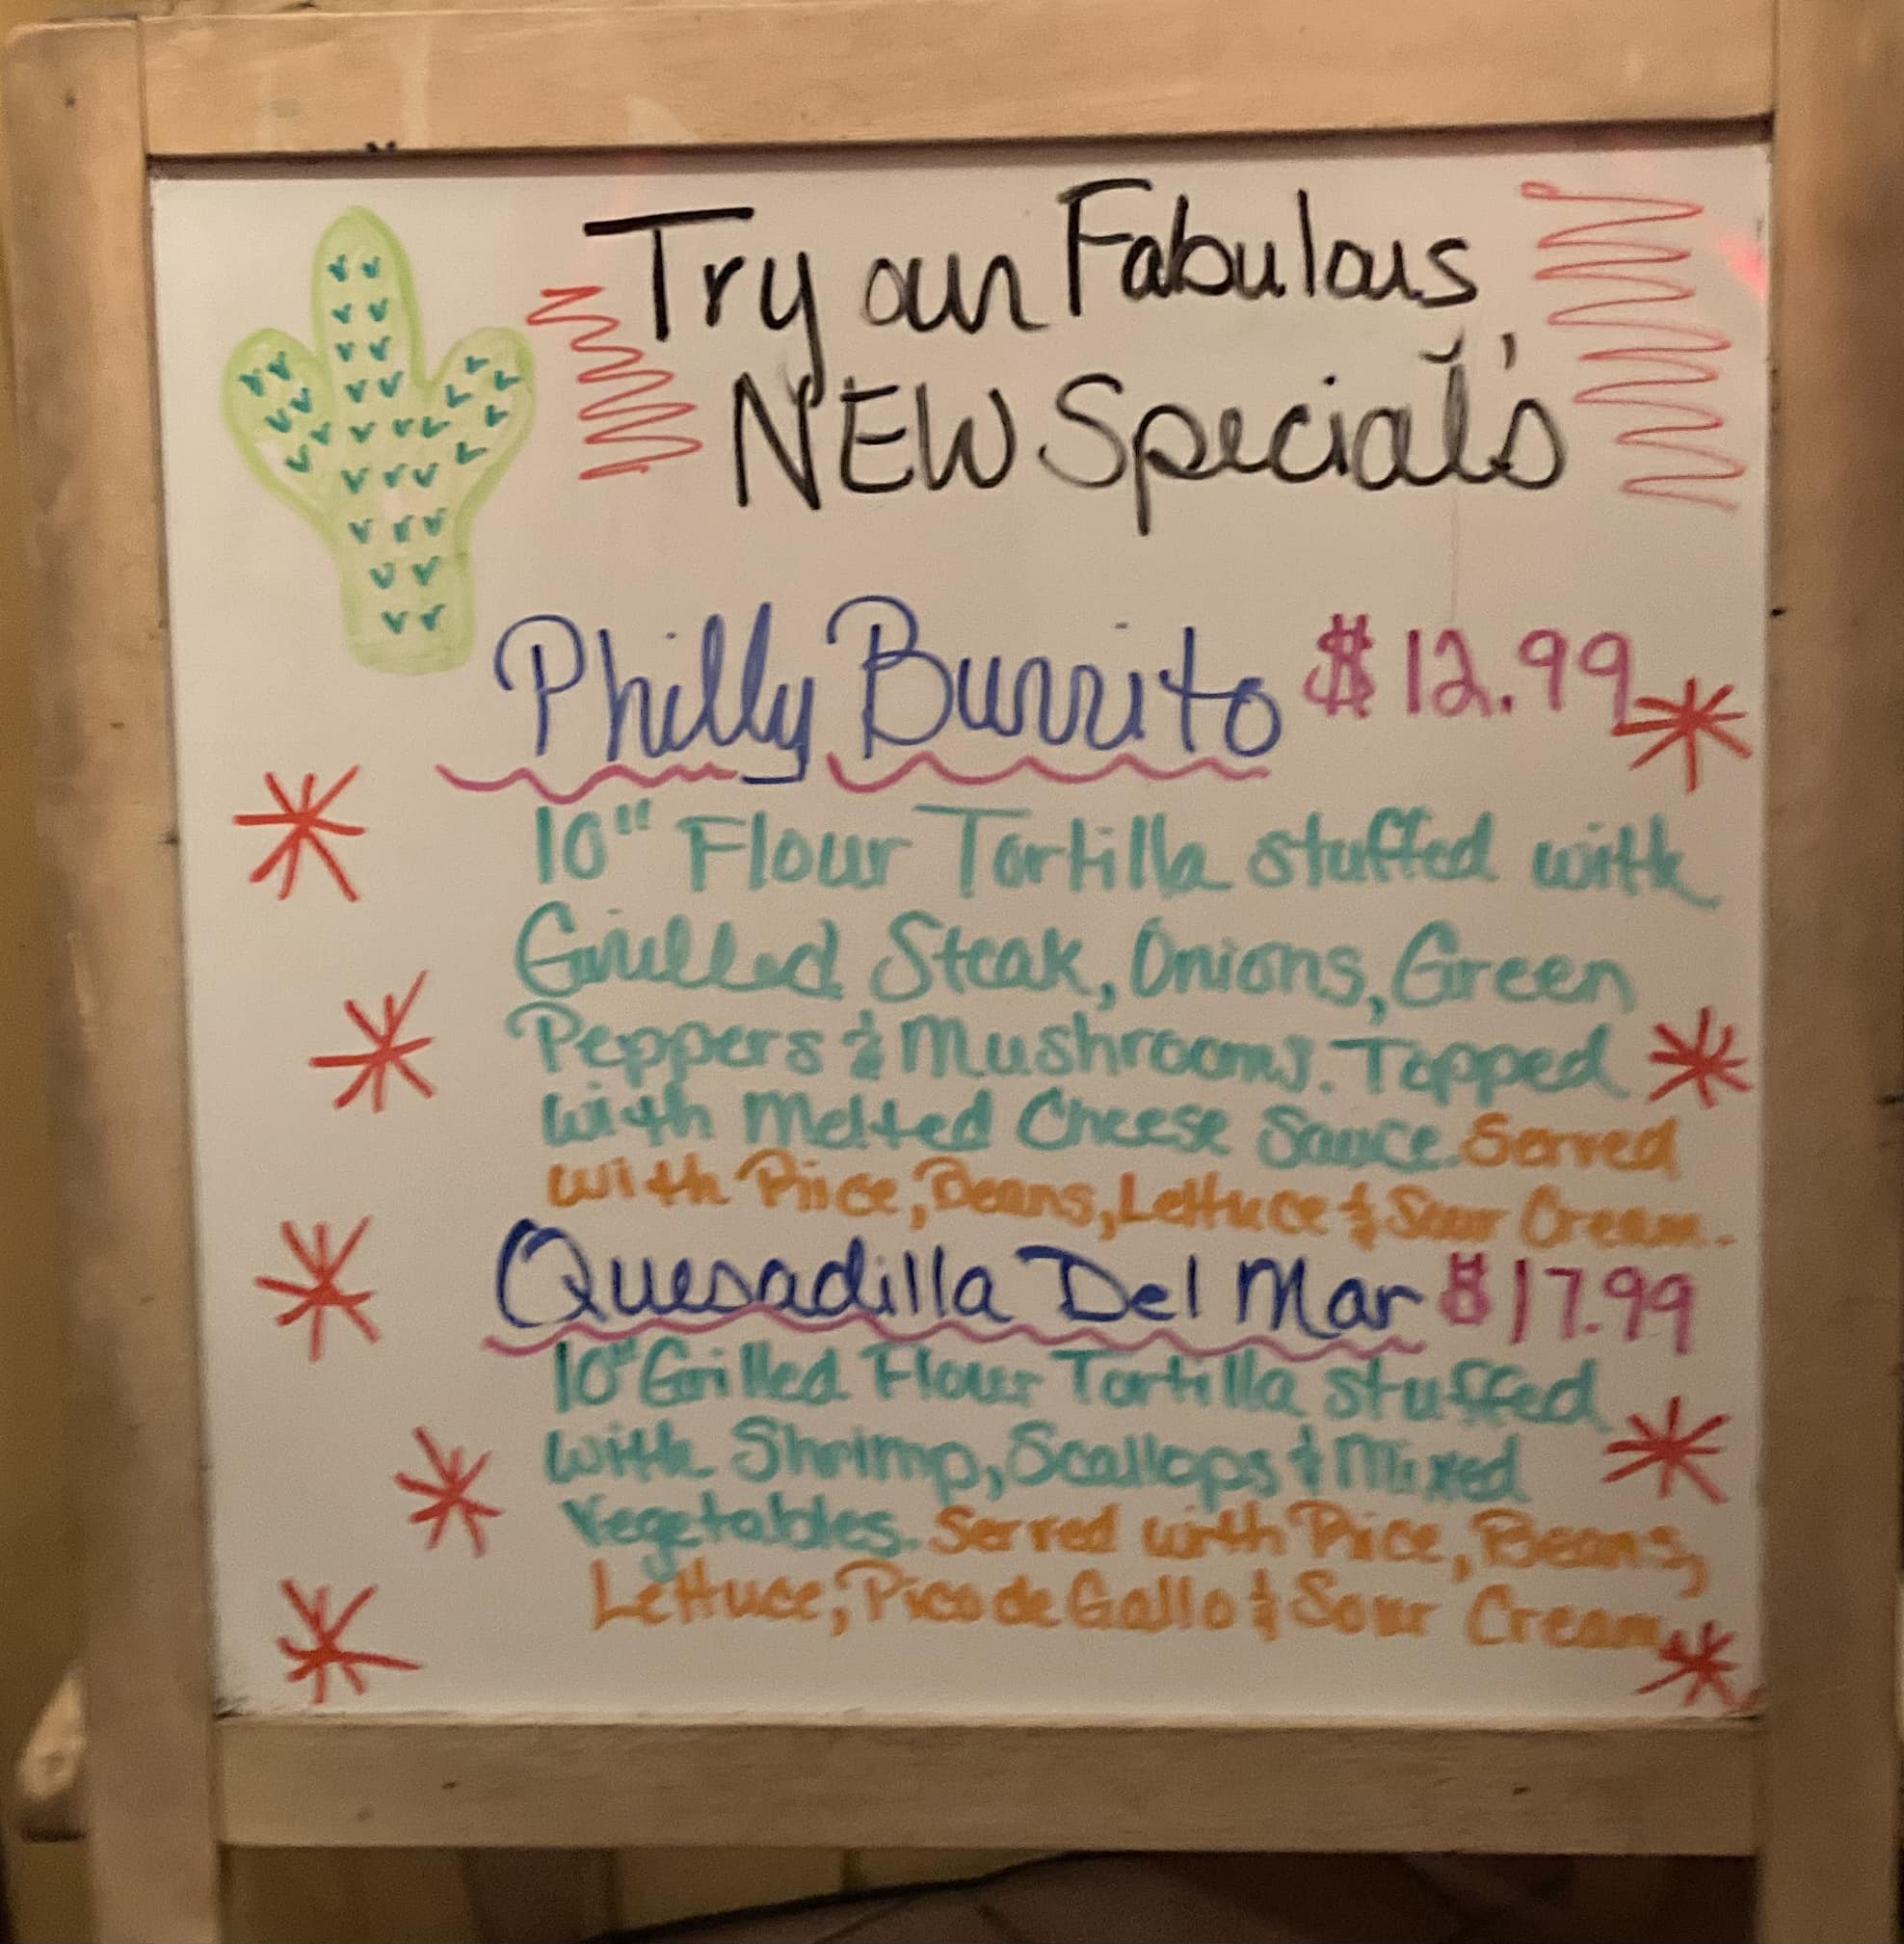 Try our Fabulous
NEW Special's
Philly Burrito $12.99
10" Flour Tortilla stuffed with
Grilled Steak, Onions, Green
Peppers & Mushrooms. Topped
with Melted Cheese Sauce. Served
with Rice, Beans, Lettuce & Sour Cream.
Quesadilla Del Mar $17.99
10" Grilled Flour Tortilla stuffed
with Shrimp, Scallops & Mixed
Vegetables. Served with Rice, Beans,
Lettuce, Pico de Gallo & Sour Cream.